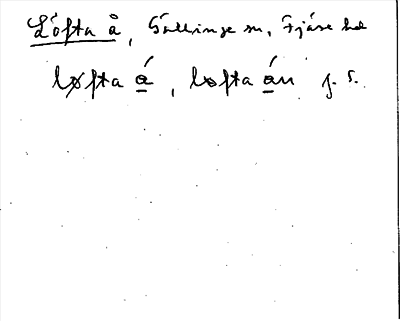 Löfta å, Sällinge sn, Fjäre hd
lǿfta á̱, løfta á̱n f. s.